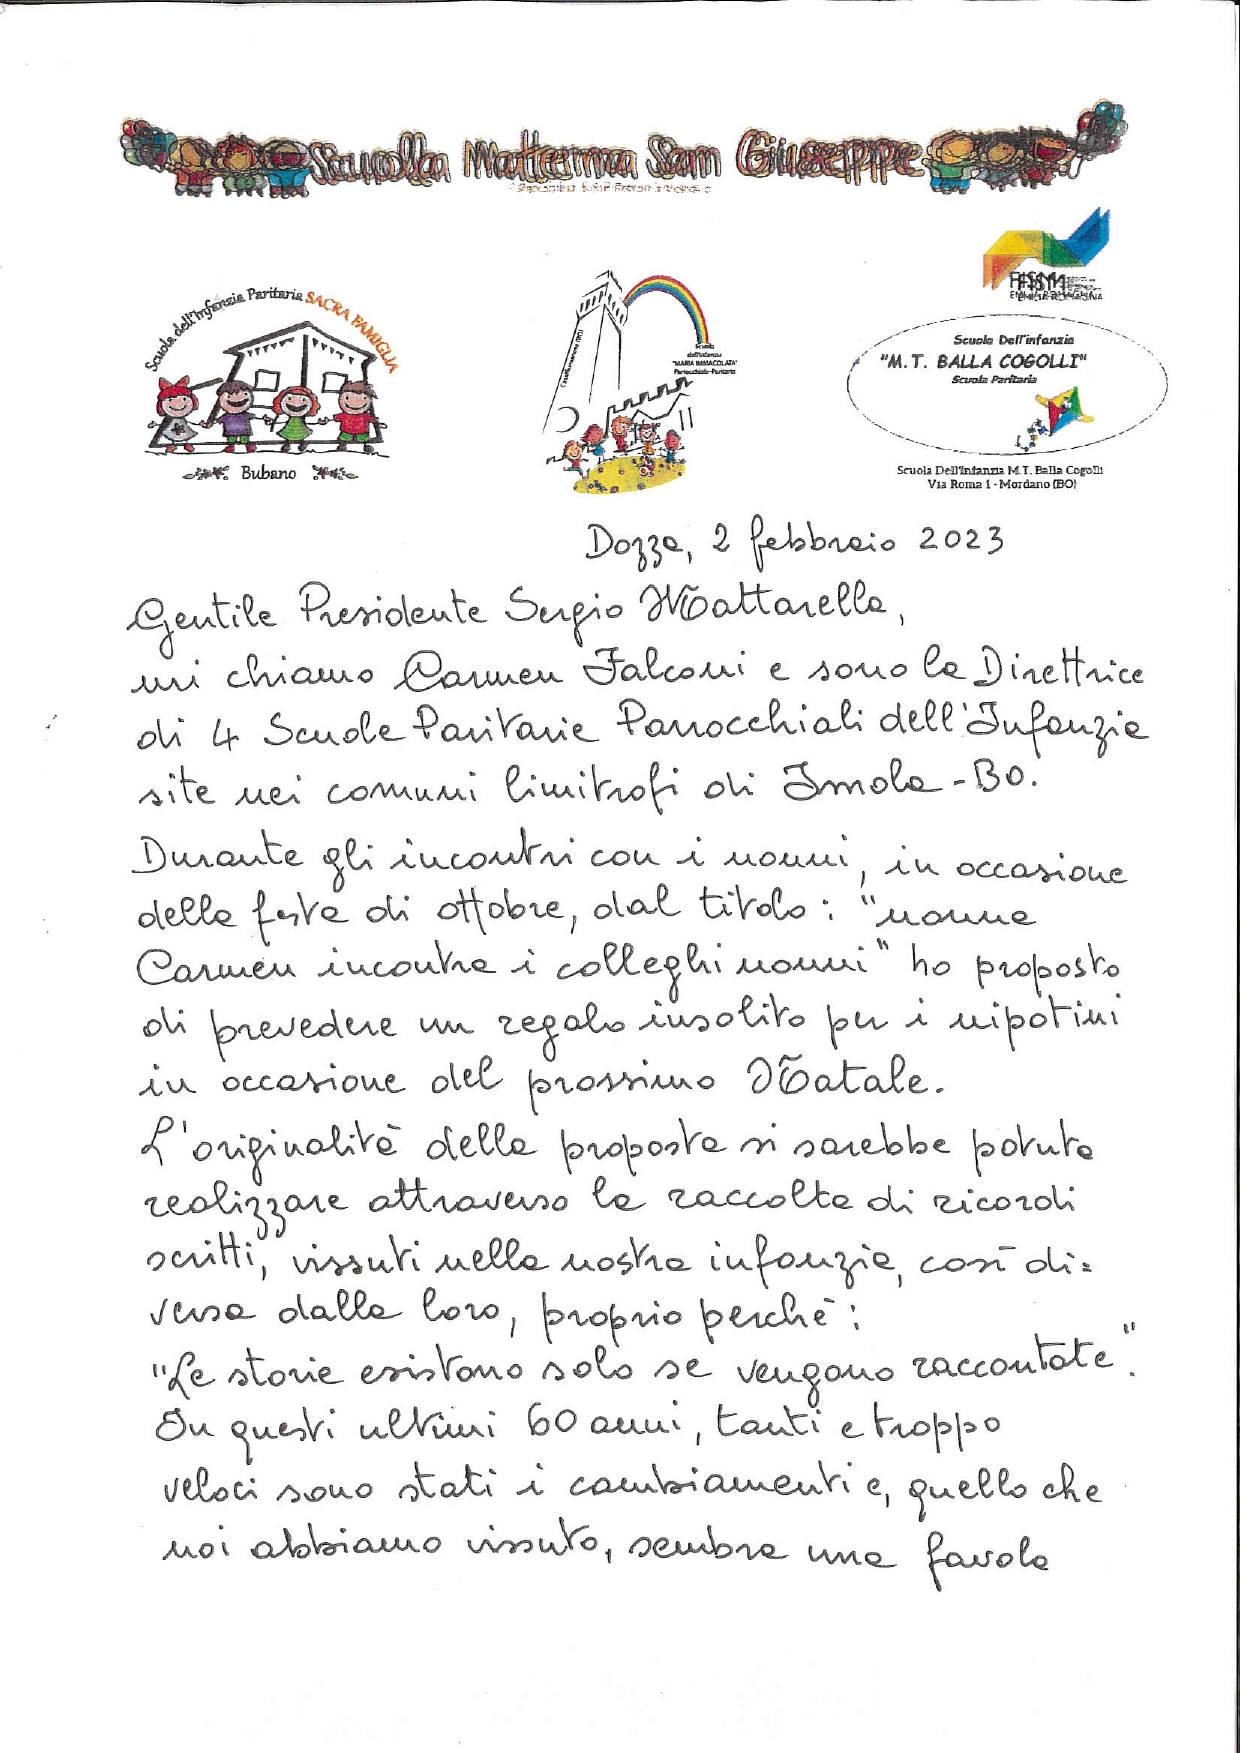 Scuola Materna San Giuseppe
FISM
Scuola dell'Infanzia Paritaria SACRA FAMIGLIA
Bubano
Scuola
dell'infanzia
"MARIA IMMACOLATA"
Parrocchiale-Paritaria
Scuola Dell'infanzia
"M.T. BALLA COGOLLI"
Scuola Paritaria
Scuola Dell'Infanzia M.T. Balla Cogolli
Via Roma 1 - Mordano (BO)
Dozza, 2 febbraio 2023
Gentile Presidente Sergio Mattarella,
mi chiamo Carmen Falconi e sono la Direttrice
di 4 Scuole Paritarie Parrocchiali dell'Infanzia
site nei comuni limitrofi di Imola - BO.
Durante gli incontri con i nonni, in occasione
della festa di ottobre, dal titolo: "nonna
Carmen incontra i colleghi nonni" ho proposto
di prevedere un regalo insolito per i nipotini
in occasione del prossimo Natale.
L'originalità della proposta si sarebbe potuta
realizzare attraverso la raccolta di ricordi
scritti, vissuti nella nostra infanzia, così di=
versa dalla loro, proprio perchè:
"Le storie esistono solo se vengono raccontate".
In questi ultimi 60 anni, tanti e troppo
veloci sono stati i cambiamenti e, quello che
noi abbiamo vissuto, sembra una favola